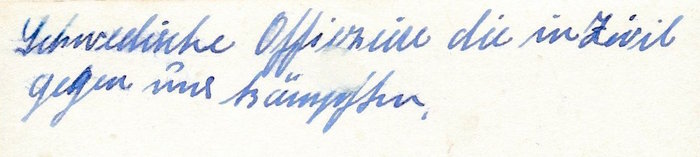 Schwedische Offiziere die in Zivil
gegen uns kämpften.